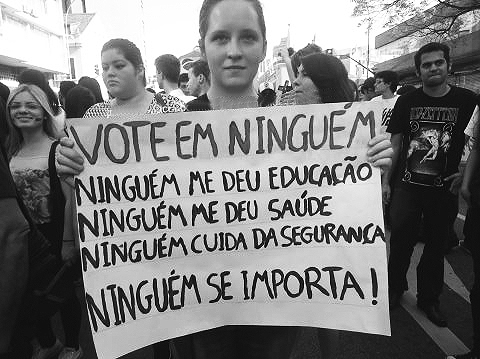 VOTE EM NINGUÉM
NINGUÉM ME DEU EDUCAÇÃO
NINGUÉM ME DEU SAÚDE
NINGUÉM CUIDA DA SEGURANÇA
NINGUÉM SE IMPORTA!
LED ZEPPELIN